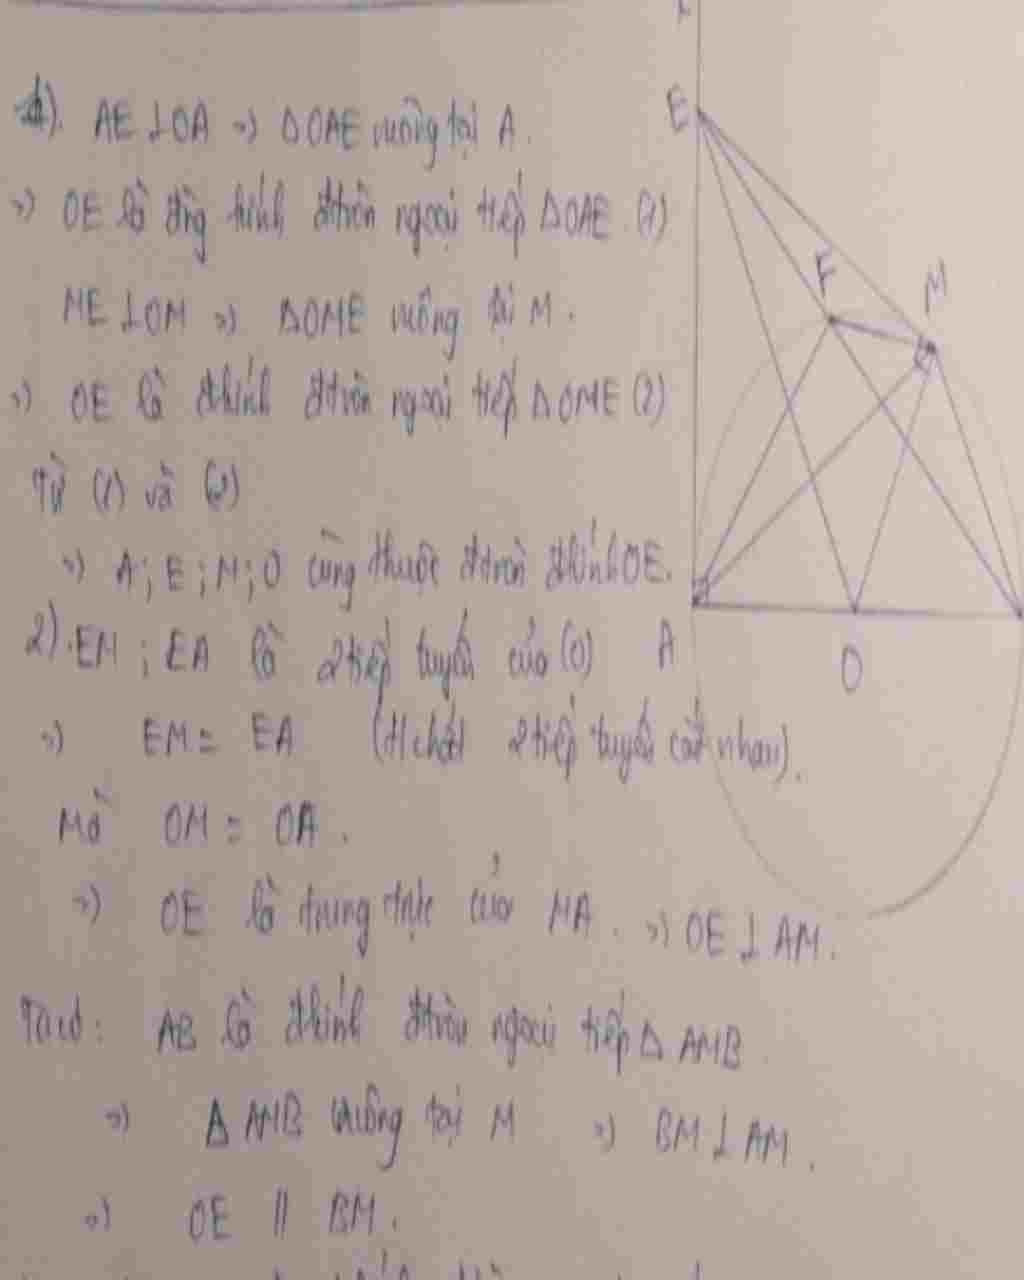 1). AE ⊥ OA => ΔOAE vuông tại A.
=> OE là đg kính đtròn ngoại tiếp ΔOAE (1)
ME ⊥ OM => ΔOME vuông tại M.
=> OE là đkính đtròn ngoại tiếp ΔOME (2)
Từ (1) và (2)
=> A; E; M; O cùng thuộc đtròn đkính OE.
2). EM; EA là 2 tiếp tuyến của (O)
=> EM = EA (t/chất 2 tiếp tuyến cắt nhau).
Mà OM = OA.
=> OE là trung trực của MA. => OE ⊥ AM.
Ta có: AB là đkính đtròn ngoại tiếp Δ AMB
=> Δ AMB vuông tại M => BM ⊥ AM.
=> OE // BM.
E
F
M
A
O